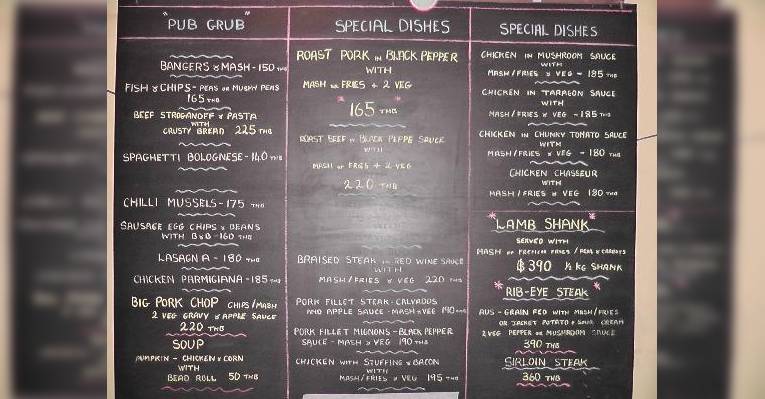 "PUB GRUB"
BANGERS & MASH - 150 THB
FISH & CHIPS - PEAS OR MUSHY PEAS
165 THB
BEEF STROGANOFF & PASTA
WITH
CRUSTY BREAD 225 THB
SPAGHETTI BOLOGNESE - 140 THB
CHILLI MUSSELS - 175 THB
SAUSAGE EGG CHIPS & BEANS
WITH B&B - 160 THB
LASAGNA - 180 THB
CHICKEN PARMIGIANA - 185 THB
BIG PORK CHOP CHIPS/MASH
2 VEG GRAVY & APPLE SAUCE
220 THB
SOUP
PUMPKIN - CHICKEN & CORN
WITH
BEAD ROLL 50 THB
SPECIAL DISHES
ROAST PORK IN BLACK PEPPER
WITH
MASH OR FRIES + 2 VEG
165 THB
ROAST BEEF IN BLACK PEPPE SAUCE
WITH
MASH OR FRIES + 2 VEG
220 THB
BRAISED STEAK IN RED WINE SAUCE
WITH
MASH/FRIES & VEG 220 THB
PORK FILLET STEAK - CALVADUS
AND APPLE SAUCE - MASH & VEG 190 THB
PORK FILLET MIGNONS - BLACK PEPPER
SAUCE - MASH & VEG 190 THB
CHICKEN WITH STUFFING & BACON
WITH
MASH/FRIES & VEG 195 THB
SPECIAL DISHES
CHICKEN IN MUSHROOM SAUCE
WITH
MASH/FRIES & VEG - 185 THB
CHICKEN IN TARAGON SAUCE
WITH
MASH/FRIES & VEG - 185 THB
CHICKEN IN CHUNKY TOMATO SAUCE
WITH
MASH/FRIES & VEG - 180 THB
CHICKEN CHASSEUR
WITH
MASH/FRIES & VEG 180 THB
*LAMB SHANK*
SERVED WITH
MASH OR FRENCH FRIES / PEAS & CARROTS
฿390 ½ KG SHANK
*RIB-EYE STEAK*
AUS - GRAIN FED WITH MASH/FRIES
OR JACKET POTATO & SOUR CREAM
2 VEG PEPPER OR MUSHROOM SAUCE
390 THB
SIRLOIN STEAK
360 THB